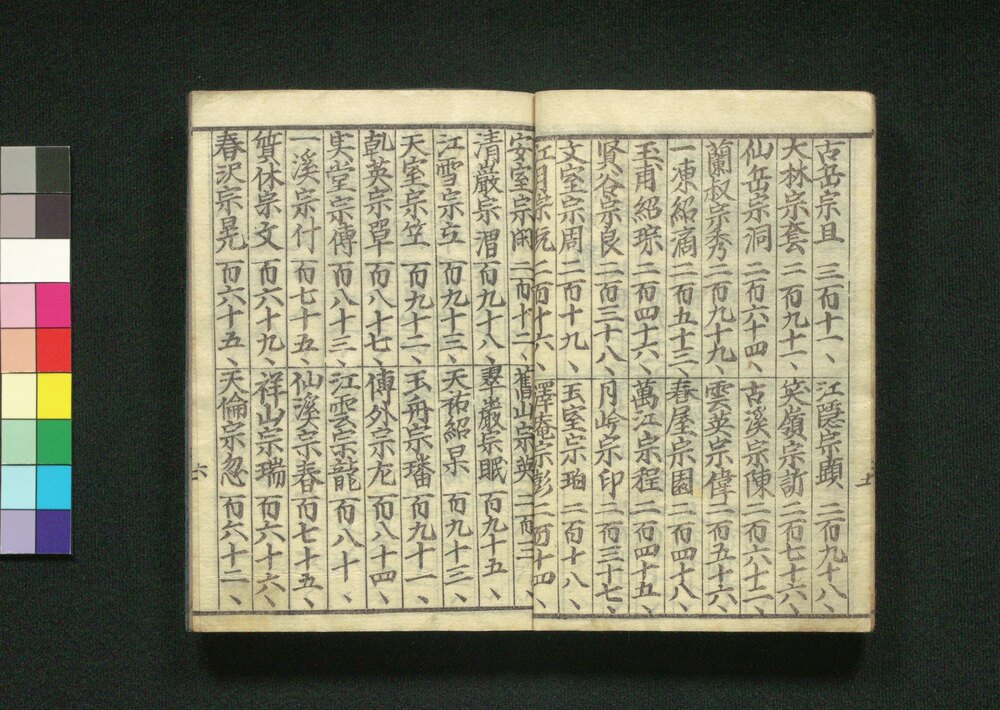 古岳宗亘 三百十一、 江隠宗顕 二百九十八、
大林宗套 二百九十一、 笑嶺宗訢 二百七十六、
仙岳宗洞 二百六十四、 古溪宗陳 二百六十二、
蘭叔宗秀 二百九十九、 雲英宗偉 二百五十六、
一凍紹滴 二百五十三、 春屋宗園 二百四十八、
玉甫紹琮 二百四十六、 萬江宗程 二百四十五、
賢谷宗良 二百三十八、 月岑宗印 二百三十七、
文室宗周 二百十九、 玉室宗珀 二百十八、
江月宗玩 二百十六、 澤庵宗彭 二百十四、
安室宗閑 二百十二、 舊山宗英 二百二
清巖宗渭 百九十八、 翠巖宗眠 百九十五、
江雪宗立 百九十三、 天祐紹杲 百九十三、
天室宗竺 百九十二、 玉舟宗璠 百九十一、
乾英宗單 百八十七、 傳外宗左 百八十四、
実堂宗傳 百八十三、 江雲宗龍 百八十、
一溪宗什 百七十五 仙溪宗春 百七十五、
質休宗文 百六十九、 祥山宗瑞 百六十六、
春沢宗晃 百六十五、 天倫宗忽 百六十二、
六